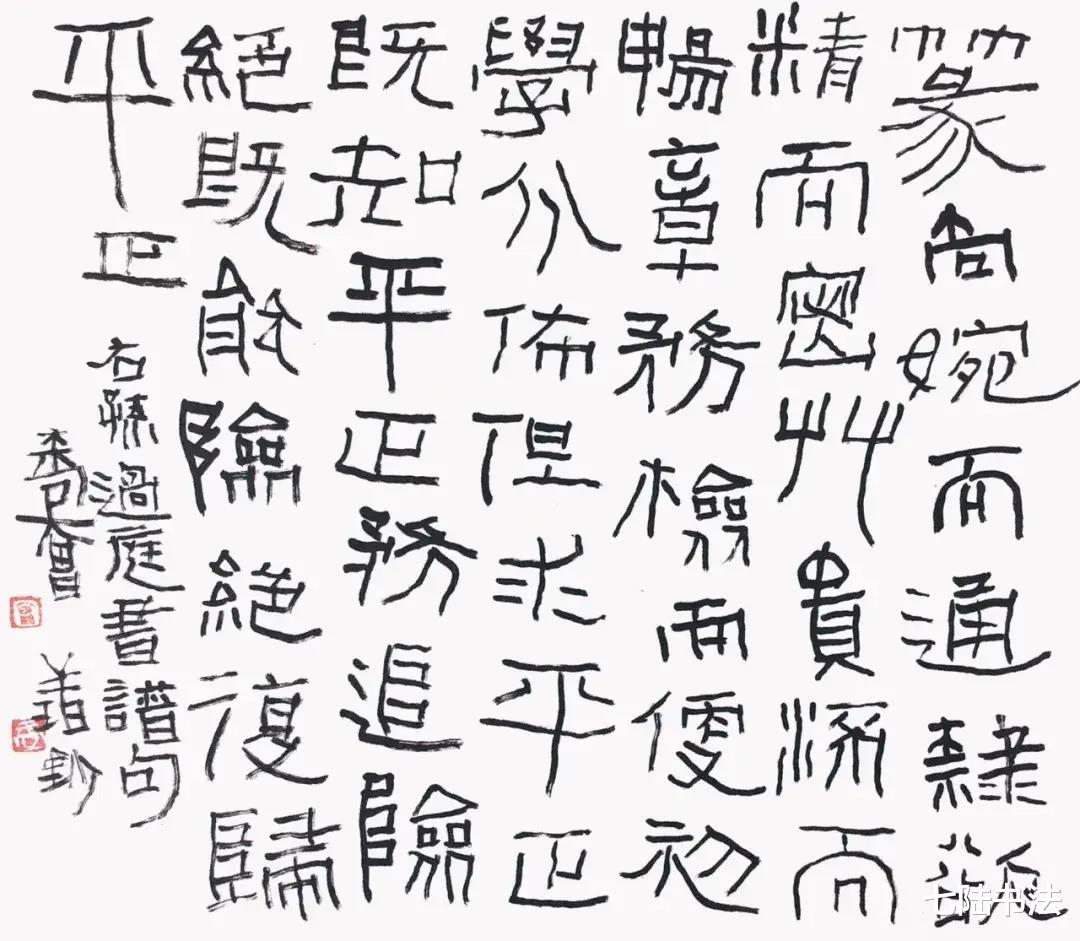 篆尚婉而通隸欲
精而密艸貴流而
暢章務檢而便初
學分佈但求平正
既知平正務追險
絕既能險絕復歸
平正
右孫過庭書譜句
鈔
七陆书法